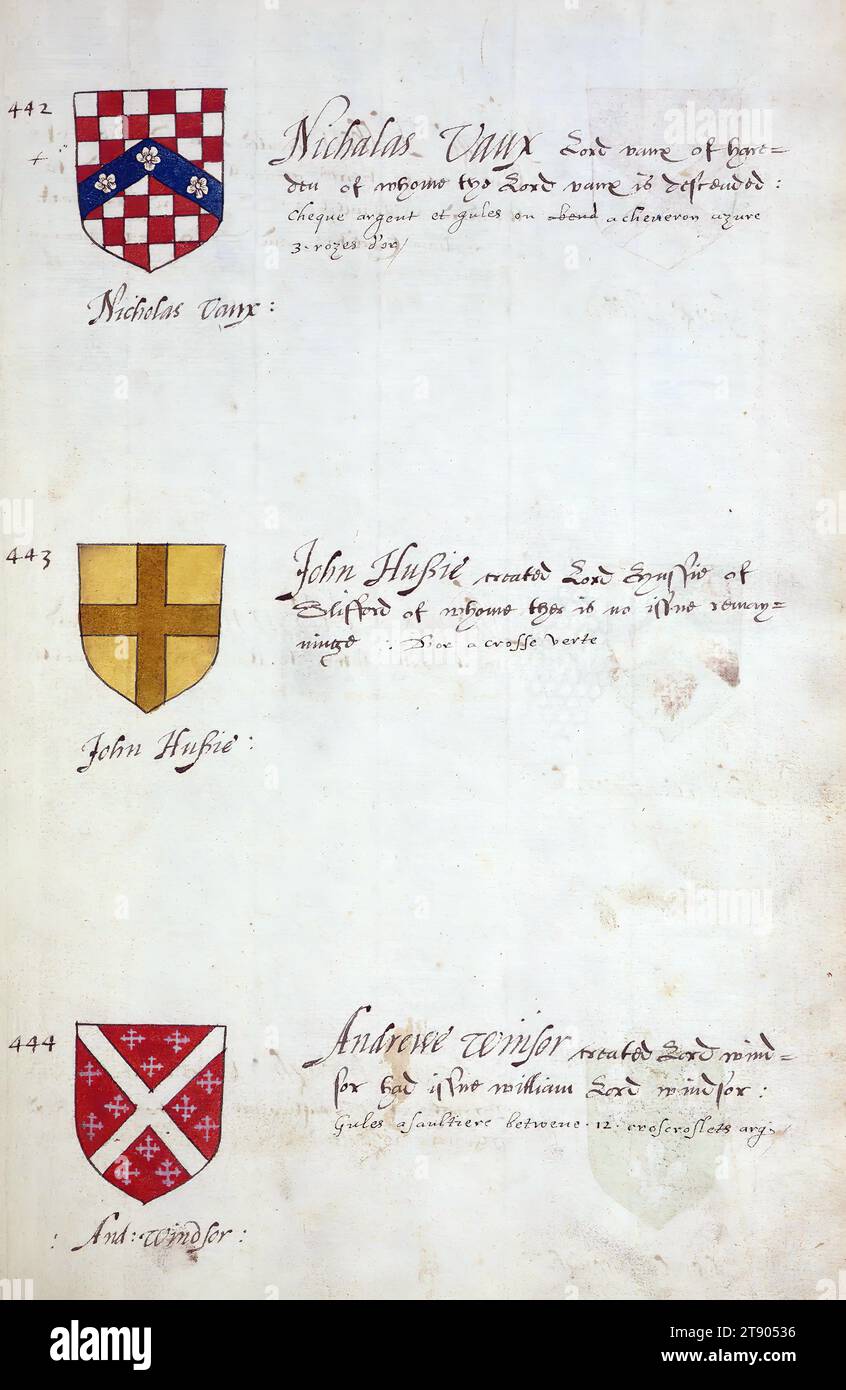 442
Nichalas Vaux Lord vaux of hare=
den of whome the Lord vaux is descended :
Cheque argent et gules on bend a cheveron azure
3 · rozes d'or
Nicholas Vaux :
443
John Hußie created Lord Hussie of
Slifford of whome ther is no issue remay=
ninge : Dor a crosse verte
John Hußie :
444
Andrewe Winsor created Lord wind=
sor had issue william Lord windsor :
Gules a saultiere betwene · 12 · croscroslets arg
: And : Windsor :
alamy
Image ID: 2T90536
www.alamy.com